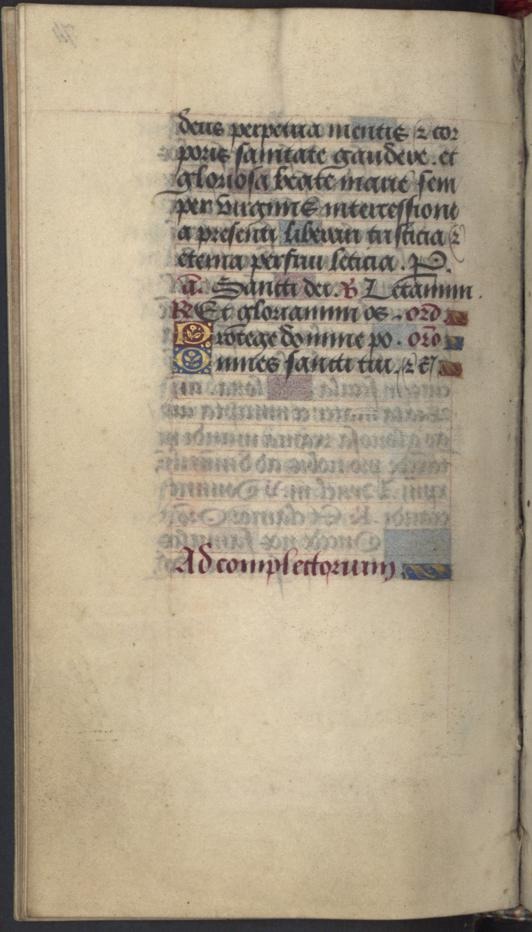 deus perpetua mentis ⁊ cor
poris sanitate gaudere. et
gloriosa beate marie sem
per virginis intercessione
a presenti liberari tristicia ⁊
eterna perfrui leticia. P.
a. Sancti dei. V Letamini.
R Et gloriamini os. oro
Protege domine po. oro
Omnes sancti tui. ⁊ c̄
Ad complectorium